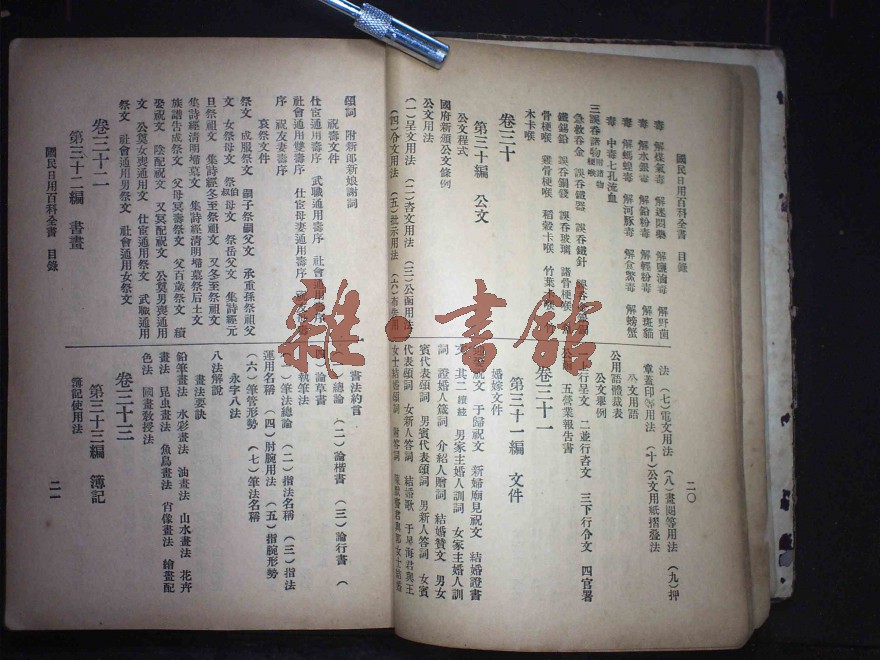 國民日用百科全書 目錄
毒 解煤氣毒 解迷悶藥 解鹽滷毒 解野菌
毒 解水銀毒 解鉛粉毒 解輕粉毒 解斑貓
毒 解螞蝗毒 解河豚毒 解食鱉毒 解螃蟹
毒 中毒七孔流血
三誤吞諸物
急救吞金 誤吞鐵器 誤吞鐵針
鐵錫鉛 誤吞銅錢 誤吞玻璃 諸骨梗喉
骨梗喉 雞骨梗喉 稻穀卡喉 竹葉卡喉
木卡喉
卷三十
第三十編 公文
公文程式
國府新頒公文條例
公文用法
(一)呈文用法 (二)咨文用法 (三)公函用法
(四)令文用法 (五)批示用法 (六)布告用
法 (七)電文用法 (八)畫圈等用法 (九)押
章蓋印等用法 (十)公文用紙摺疊法
公用語體裁表
公文用語
公文舉例
一上行呈文 二並行咨文 三下行令文 四官署
五營業報告書
卷三十一
第三十一編 文件
婚嫁文件
祝文 于歸祝文 新婦廟見祝文 結婚證書
文 其二 男家主婚人訓詞 女家主婚人訓
詞 證婚人箴詞 介紹人贈詞 結婚贊文 男女
賓代表頌詞 男賓代表頌詞 男新人答詞 女賓
代表頌詞 女新人答詞 結婚歌 于星海君與王
女士結婚頌詞
二〇
頌詞 附新郎新娘謝詞
祝壽文件
仕宦通用壽序 武職通用壽序 社會通用壽序
社會通用雙壽序 仕宦母妻通用壽序
序 祝友妻壽序
哀祭文件
祭文 成服祭文 嗣子祭嗣父文 承重孫祭祖父
文 女祭母文 祭伯叔母文 祭岳父文 集詩經元
旦祭祖文 集詩經冬至祭祖文 又冬至祭祖文
集詩經清明埽墓文 集詩經清明埽墓祭后土文
族譜告成祭文 父母冥壽祭文 父百歲祭文 續
娶祝文 陰配祝文 又冥配祝文 公奠男喪通用
文 公奠女喪通用文 仕宦通用祭文 武職通用
祭文 社會通用男祭文 社會通用女祭文
卷三十二
第三十二編 書畫
書法約言
(一)總論 (二)論楷書 (三)論行書 (
四)論草書
執筆法
(一)筆法總論 (二)指法名稱 (三)指法
運用名稱 (四)肘腕用法 (五)指腕形勢
(六)筆管形勢 (七)筆法名稱
永字八法
八法解說
畫法要訣
鉛筆畫法 水彩畫法 油畫法 山水畫法 花卉
畫法 昆虫畫法 魚鳥畫法 肖像畫法 繪畫配
色法 國畫教授法
卷三十三
第三十三編 簿記
簿記使用法
國民日用百科全書 目錄
二一
雜·書館